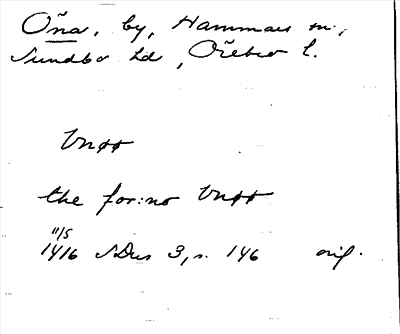 Öna, by, Hammars sn,
Sundbo hd, Örebro l.
Vnøø
the for:no Vnøø
11/5
1416 SDns 3, s. 146 orig.